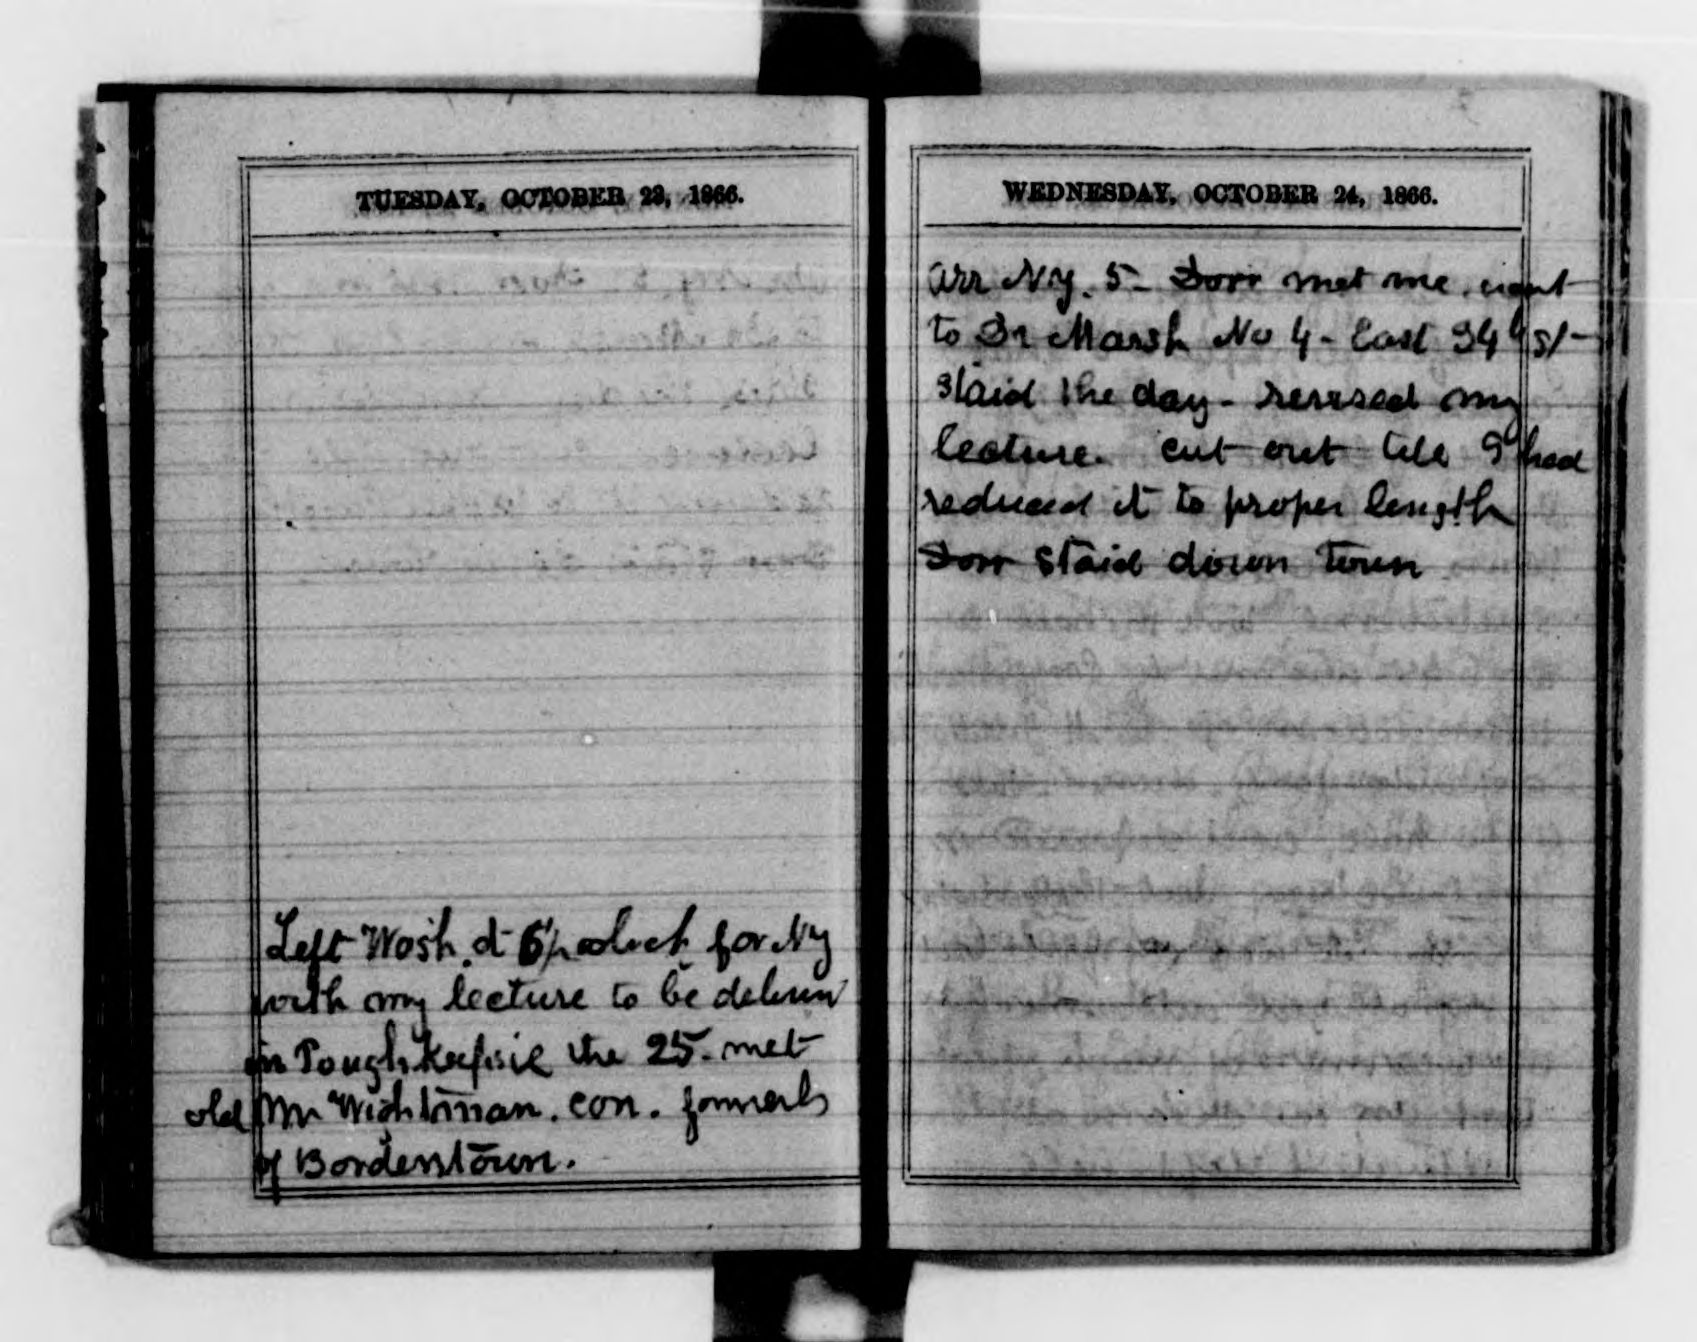 TUESDAY, OCTOBER 23, 1866.
Left Wash. at 6 oclock for Ny
with my lecture to be deliver
in Poughkeepsie the 25. met
old Mr Wightman. con. formerly
of Bordenstown.
WEDNESDAY, OCTOBER 24, 1866.
Arr Ny. 5- Dorr met me. went
to Dr Marsh No 4- East 34 st-
staid the day- revised my
lecture. cut out till I had
reduced it to proper length
Dorr staid down town